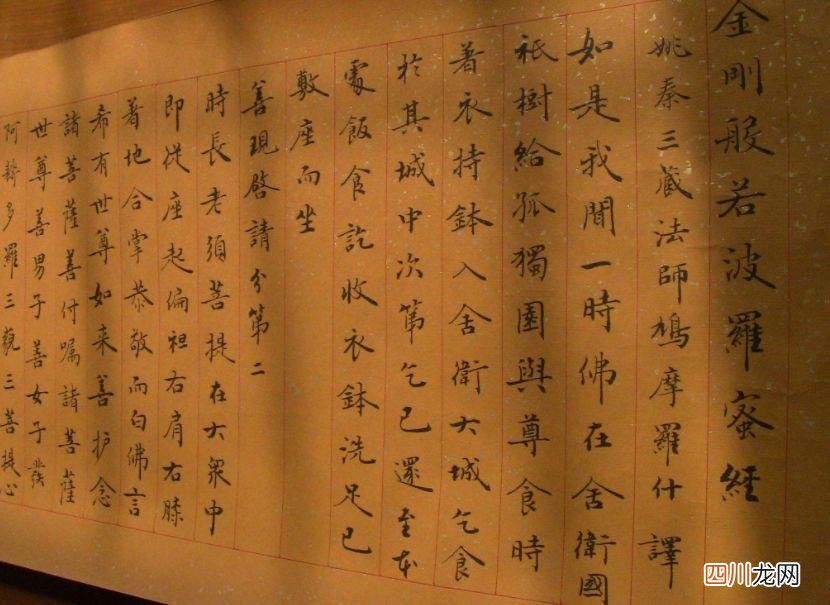 金剛般若波羅蜜經
姚秦三藏法師鳩摩羅什譯
如是我聞一時佛在舍衛國
祇樹給孤獨園與尊食時
著衣持鉢入舍衛大城乞食
於其城中次第乞已還至本
處飯食訖收衣鉢洗足已
敷座而坐
善現啓請分第二
時長老須菩提在大衆中
即從座起偏袒右肩右膝
着地合掌恭敬而白佛言
希有世尊如来善护念
諸菩薩善付嘱諸菩薩
世尊善男子善女子發
阿耨多羅三藐三菩提心
四川龙网